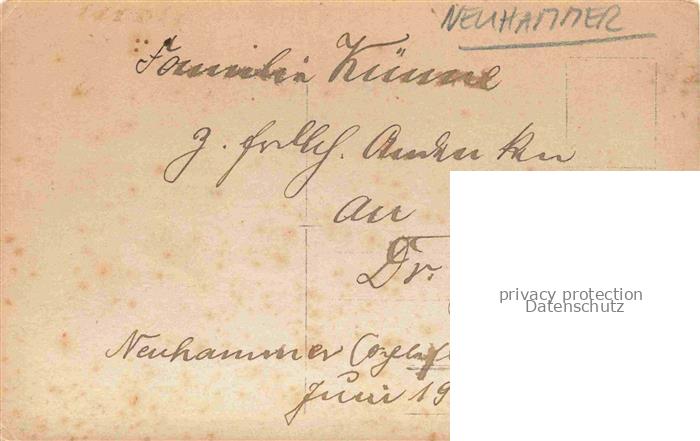 NEUHAMMER
Familie Künne
z. frdlch. Andenken
an
Dr.
Neuhammer (Schles
Juni 19
privacy protection
Datenschutz